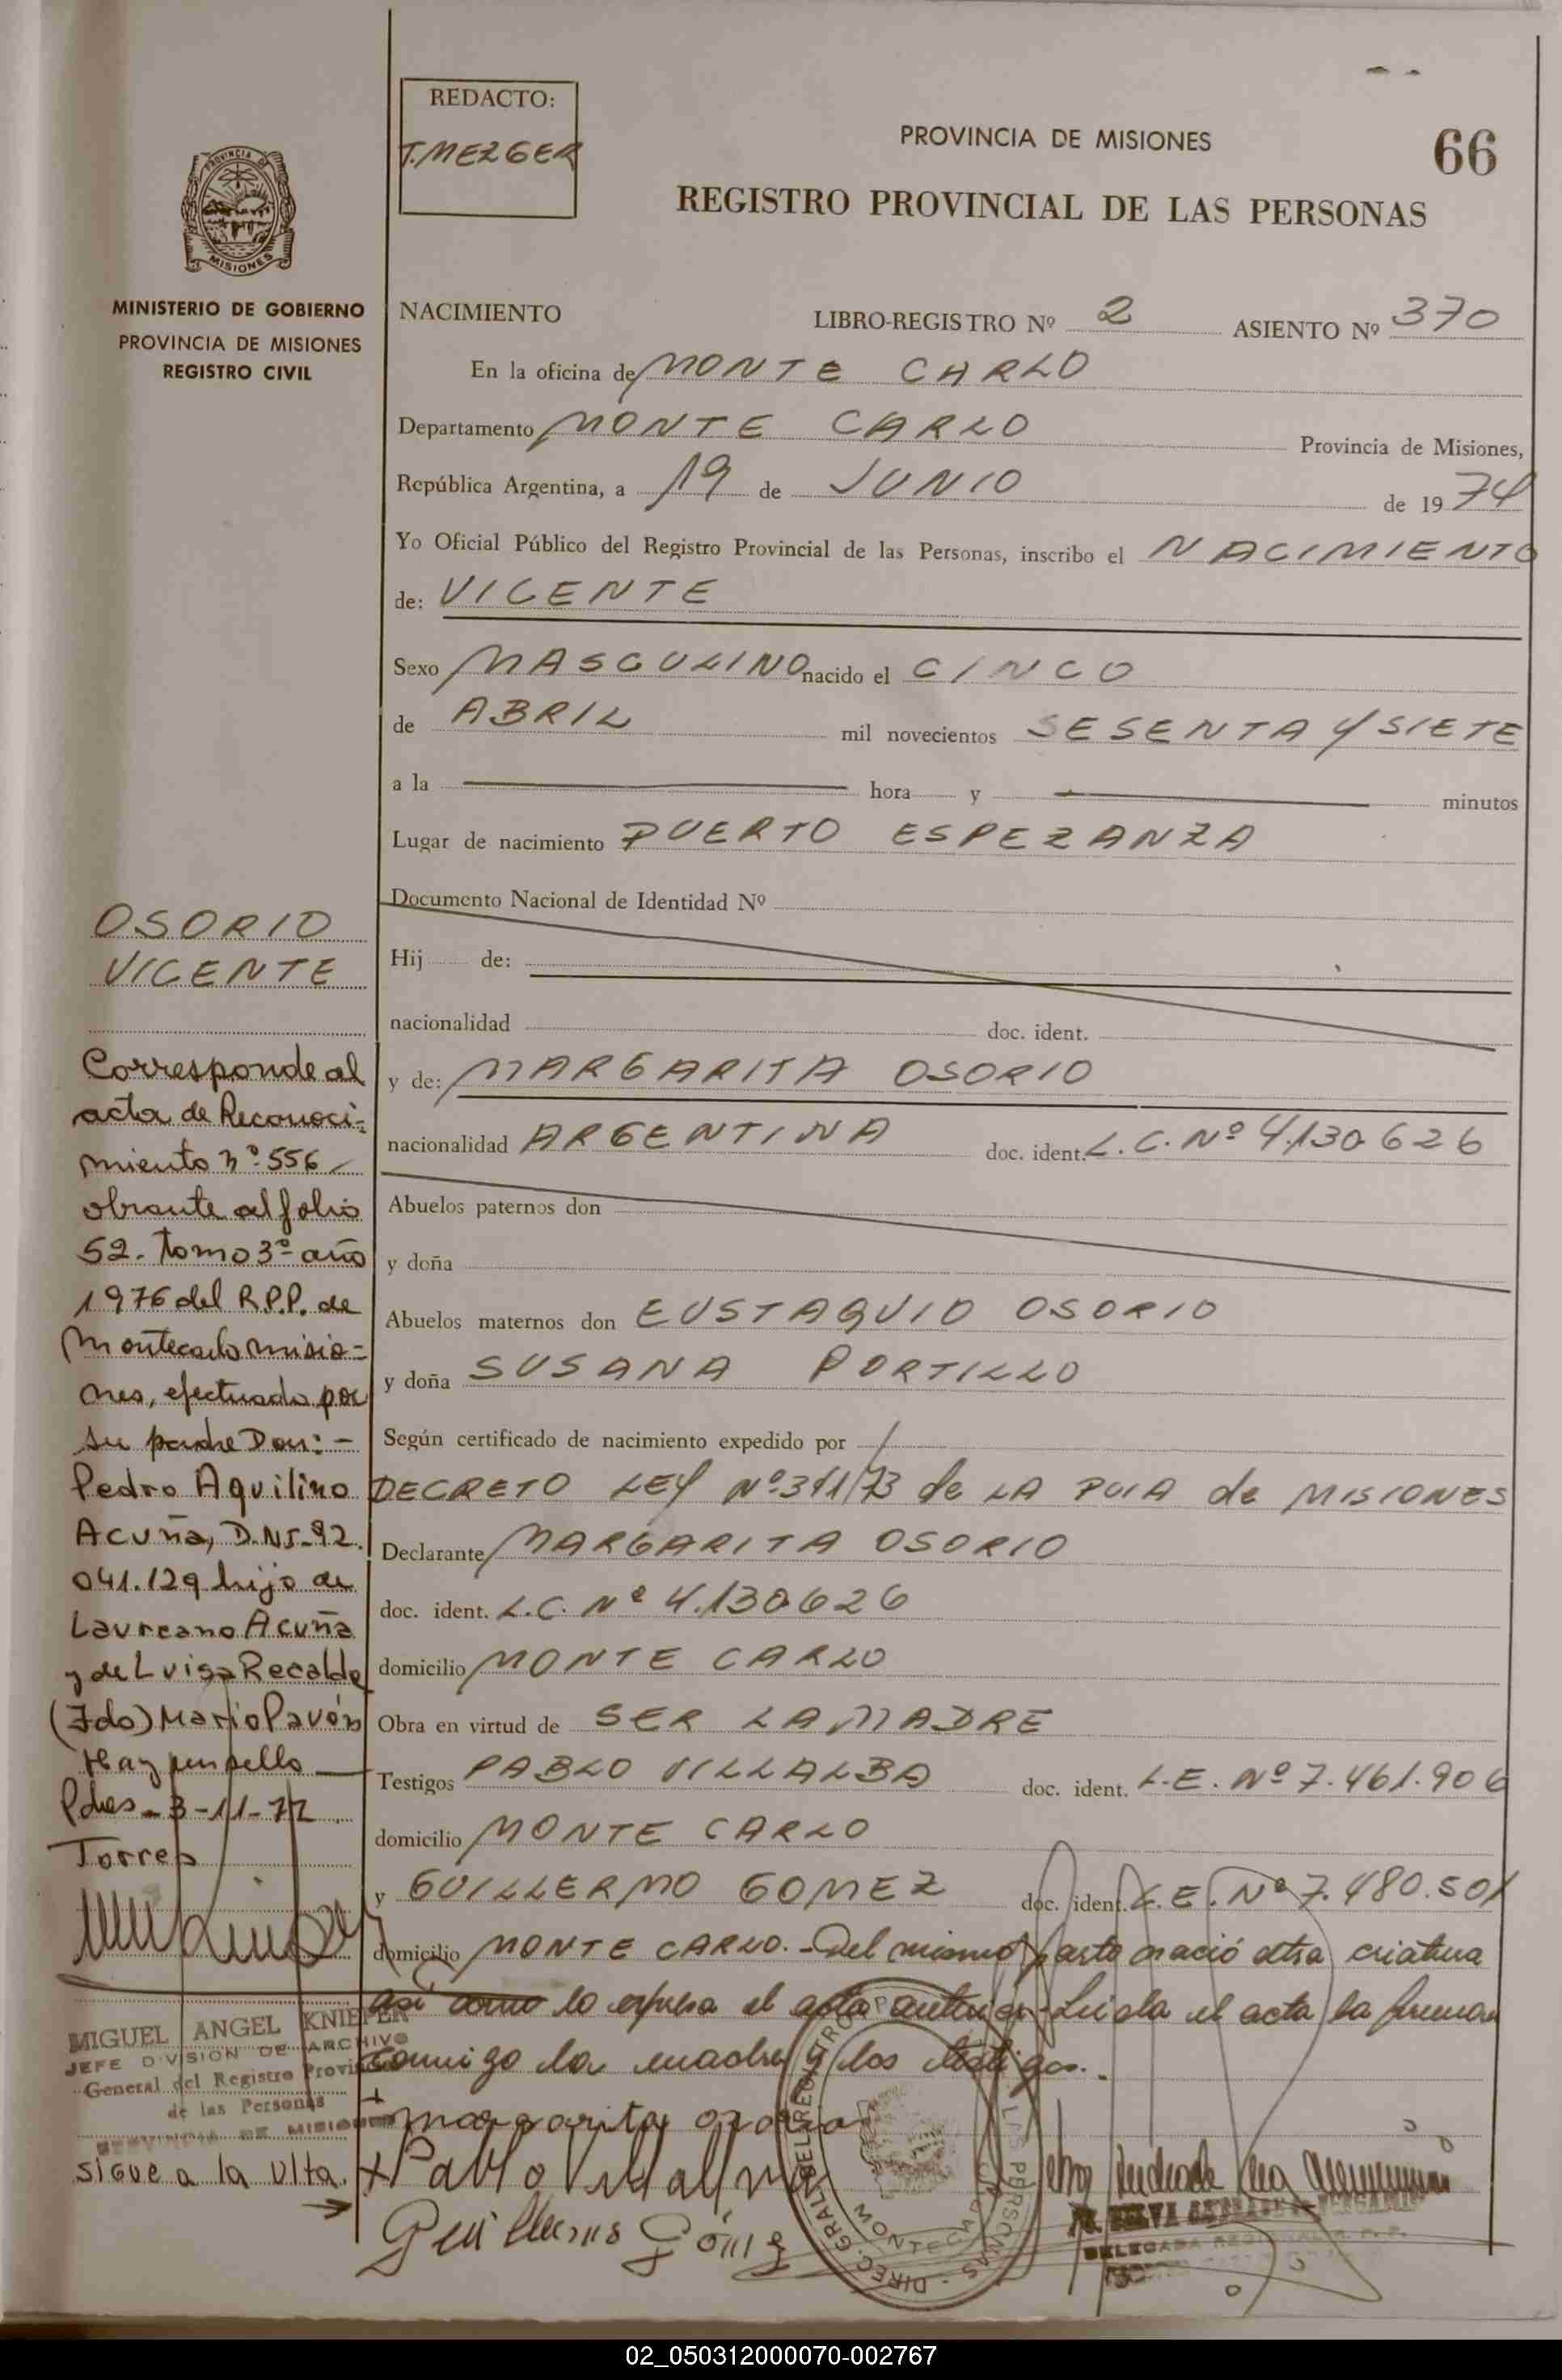 REDACTO:
T. MEZGER
PROVINCIA DE MISIONES
66
REGISTRO PROVINCIAL DE LAS PERSONAS
PROVINCIA DE
MISIONES
MINISTERIO DE GOBIERNO
PROVINCIA DE MISIONES
REGISTRO CIVIL
NACIMIENTO LIBRO-REGISTRO Nº 2 ASIENTO Nº 370
En la oficina de MONTE CARLO
Departamento MONTE CARLO Provincia de Misiones,
República Argentina, a 19 de JUNIO de 1974
Yo Oficial Público del Registro Provincial de las Personas, inscribo el NACIMIENTO
de: VICENTE
Sexo MASCULINO nacido el CINCO
de ABRIL mil novecientos SESENTA Y SIETE
a la hora y minutos
Lugar de nacimiento PUERTO ESPERANZA
Documento Nacional de Identidad Nº
Hij de:
nacionalidad doc. ident.
y de: MARGARITA OSORIO
nacionalidad ARGENTINA doc. ident. L.C. Nº 4.130.626
Abuelos paternos don
y doña
Abuelos maternos don EUSTAQUIO OSORIO
y doña SUSANA PORTILLO
Según certificado de nacimiento expedido por /
DECRETO LEY Nº 311/73 de LA PCIA de MISIONES
Declarante MARGARITA OSORIO
doc. ident. L.C. Nº 4.130.626
domicilio MONTE CARLO
Obra en virtud de SER LA MADRE
Testigos PABLO VILLALBA doc. ident. L.E. Nº 7.461.906
domicilio MONTE CARLO
y GUILLERMO GOMEZ doc. ident. L.E. Nº 7.480.501
domicilio MONTE CARLO.- Del mismo parto nació otra criatura
así como lo expresa el acta anterior. Leida el acta la firman
comigo la madre y los testigos.-
+ margarita ozorio
+ Pablo Villalva
Guillermo Gómez
OSORIO
VICENTE
Corresponde al
acta de Reconoci-
miento nº 556
obrante al folio
52. tomo 3º año
1976 del R.P.P. de
Montecarlo misio-
nes, efectuado por
su padre Don: -
Pedro Aquilino
Acuña, D.N.I. 92.
041.129 hijo de
Laureano Acuña
y de Luisa Recalde
(Fdo) Mario Pavón
Hay un sello
Pdas - 3-11-77
Torres
MIGUEL ANGEL KNIEPER
JEFE DIVISION DE ARCHIVO
General del Registro Provincial
de las Personas
PROVINCIA DE MISIONES
sigue a la vlta.
DIREC. GRAL. DEL REGISTRO LAS PERSONAS
MONTECARLO
DELEGADA
02_050312000070-002767